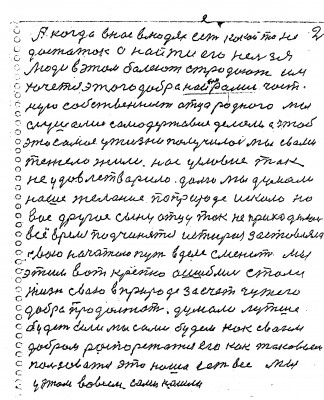 2
А когда в нас входя ест какой та не
достаток а найти его нелзя
Люди в этом болеют страдают им
хочется этого добра найти
ную собственност отца родного мы
слушали самодержавие делали чтоб
это самое у жизни получилос мы сваи
тежело жили. нас условие так
не удовлетварило. долго мы думали
наше желание искало но
вое другое сыну отцу так не приходилос
всё время подчинятся заставляла
своё начатое пут в деле сменит мы
этим вот крепко ошиблис стали
жизн сваю в природе за счёт чужего
добра продолжат. думали лутше
будет если мы сами будем как сваим
добром распоряжатся его как таковым
ползоватся это наша ест все мы
у этом вовсем сами нашли